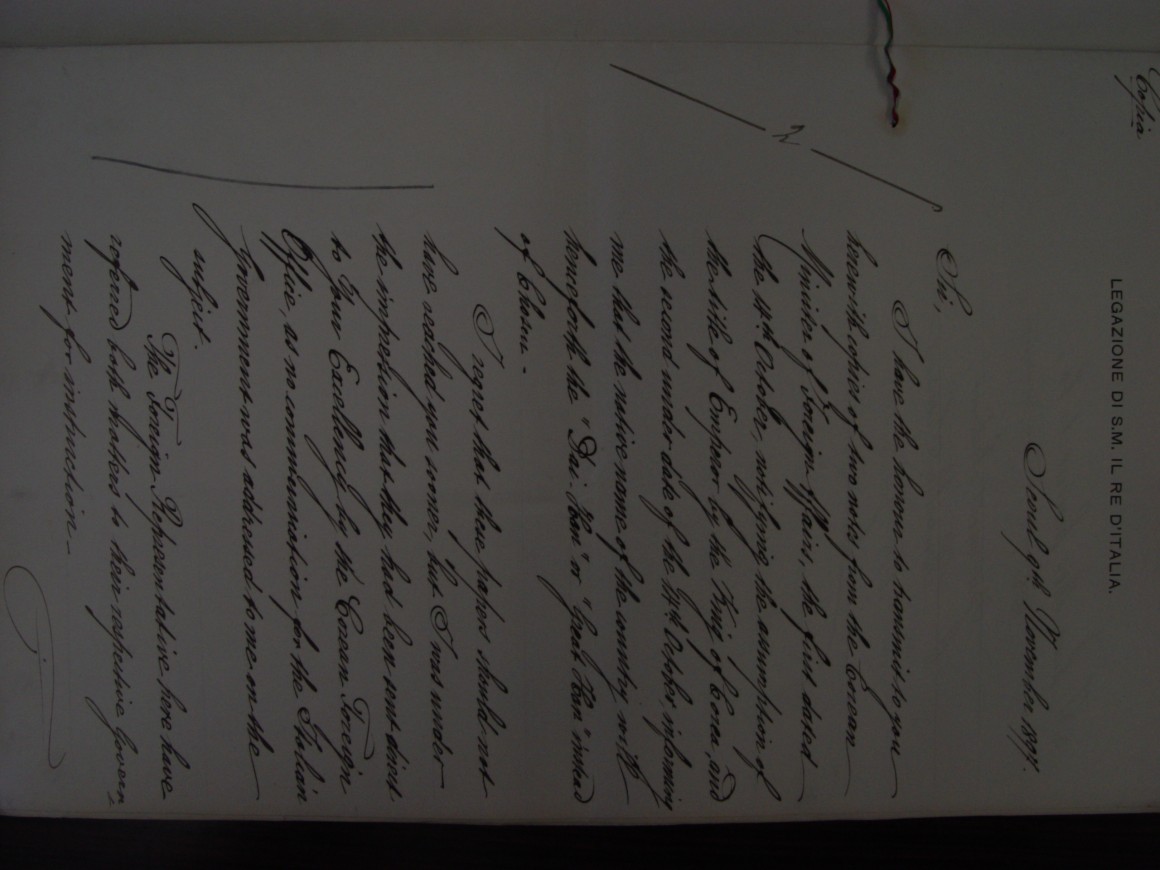 Copia
LEGAZIONE DI S.M. IL RE D'ITALIA.
Seoul 9th. November 1897.
Sir,
I have the honour to transmit to you
herewith copies of two notes from the Corean
Minister of Foreign Affairs, the first dated
the 14th October, notifying the assumption of
the title of Emperor by the King of Corea, and
the second under date of the October, informing
me that the native name of the country will
henceforth be "Dai-Han" or "Great Han" instead
of Chosen.-
I regret that these papers should not
have reached you sooner, but I was under
the impression that they had been sent direct
to Your Excellency by the Corean Foreign
Office, as no communication for the Italian
Government was addressed to me on the
subject.
The Foreign Representatives here have
referred both the matters to their respective Govern
ments for instruction.-
2